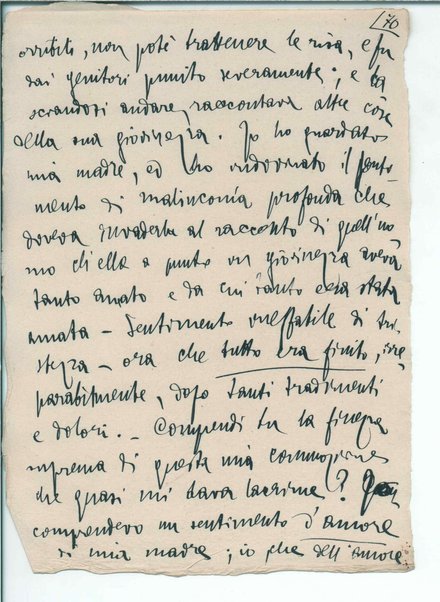 70
orribili, non poté trattenere le risa, e fu
dai genitori punito severamente; e la
sciandosi andare, raccontava altre cose
della sua giovinezza. Io ho guardato
mia madre, ed ho indovinato il senti-
mento di malinconia profonda che
doveva invaderla al racconto di quell'uo
mo ch'ella a punto in giovinezza aveva
tanto amato e da cui tanto era stata
amata – Sentimento ineffabile di tri-
stezza – ora che tutto era finito, irre
parabilmente, dopo tanti tradimenti
e dolori. – Comprendi tu la finezza
suprema di questa mia commozione
che quasi mi dava lacrime? Io
comprendevo un sentimento d'amore
di mia madre; io che dell'amore